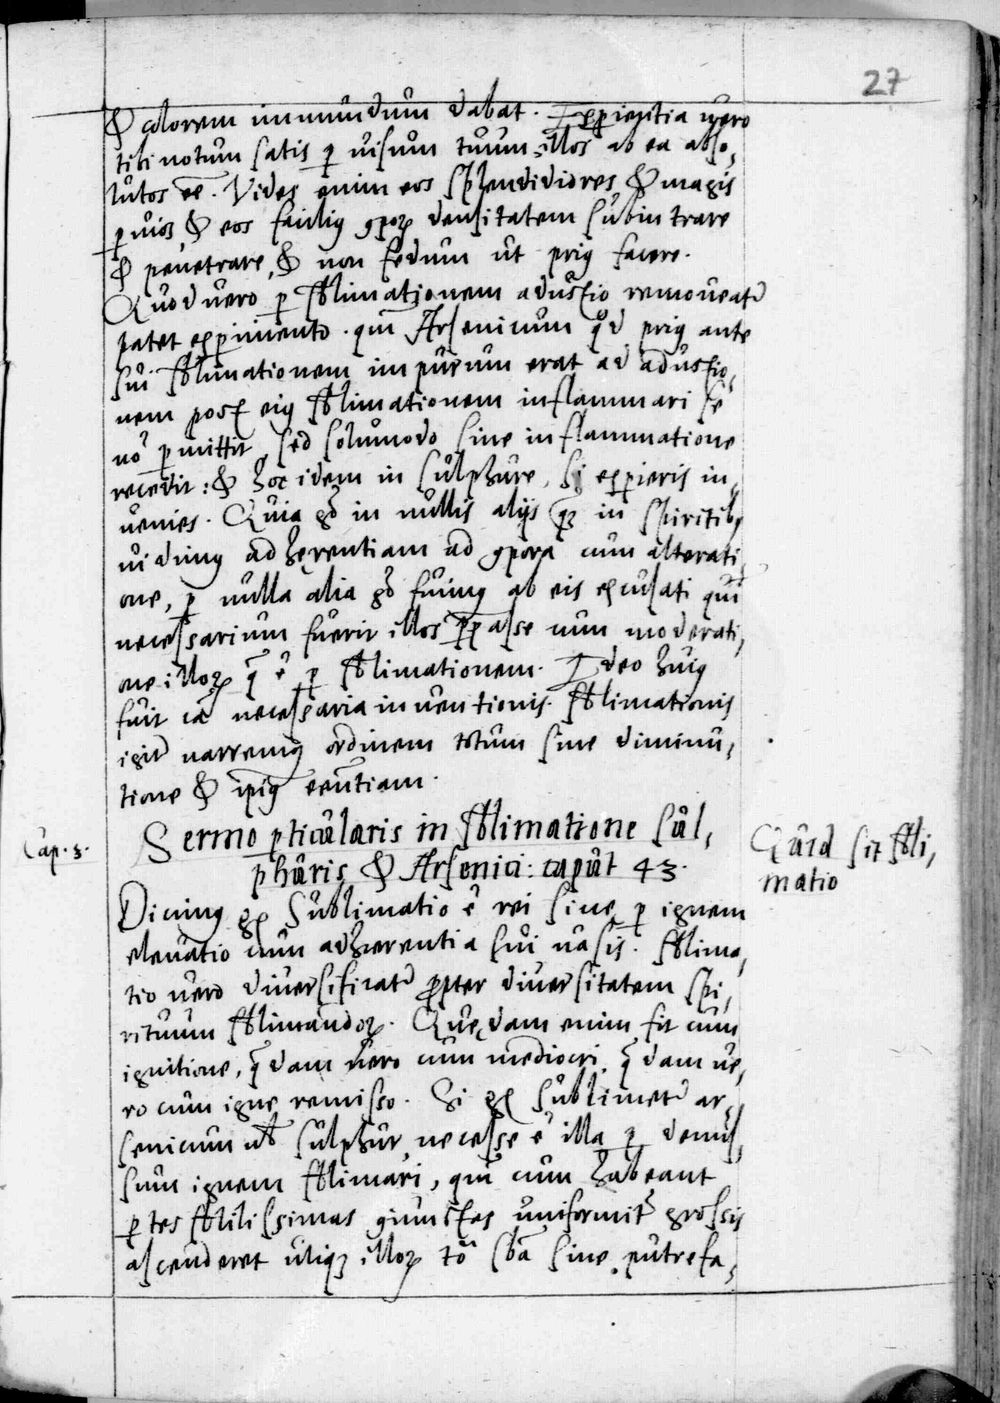 27
& colorem immundum dabat. Experientia uero
tibi notum satis p̱ uisum tuum illos ab ea abso,
lutos ee̅. Vides enim eos splendidiores & magis
p̱uios & eos facilius corpoꝝ densitatem subintrare
& penetrare, & non fedum ut prius facere.
Quod uero p̱ sblimationem adustio remoueat᷑
patet experimento. qm̅ Arsenicum qd̅ prius ante
sui sblimationem impurum erat ad adustio,
nem post eius sblimationem inflammari se
no̅ p̱mittit, sed solum̅odo sine inflammatione
recedit: & hoc idem in sulphure, si exp̱ieris in,
uenies. Quia g̊ in nullis alijs qꝫ in spiritibꝫ
uidimus adhęrentiam ad corpora cum alterati,
one, p̱ nulla alia g̊ fuimus ab eis excusati quin
necessarium fuerit illos p̱p̱asse cum moderati,
one illoꝝ q̅ e̅ p̱ sblimationem. Ideo huius
fuit ca̅ necessaria inuentionis. Sblimationis
igit᷑ narremus ordinem totum sine diminu,
tione & ipius̅ een̅tiam.
Sermo p̱ticularis in sblimatione sul,
phuris & Arsenici: caput 43.
Cap. 3.
Quid sit sbli,
matio
Dicimus g̊ Sublimatio e̅ rei siccę p̱ ignem
eleuatio cum adhærentia sui uasis. Sblima,
tio uero diuersificat᷑ ꝓpter diuersitatem spi,
rituum sblimandoꝝ. Quędam enim fit cum
ignitione, q̅dam uero cum mediocri, q̅dam ue,
ro cum igne remisso. Si g̊ sublimet᷑ ar,
senicum ul̅ sulphur, necesse e̅ illa p̱ demis,
sum ignem sblimari, qm̅ cum habeant
p̱tes sbtilissimas coniunctas uniformit᷑ grossis
ascenderet utiqꝫ illoꝝ to̅ sba̅ sine putrefa,